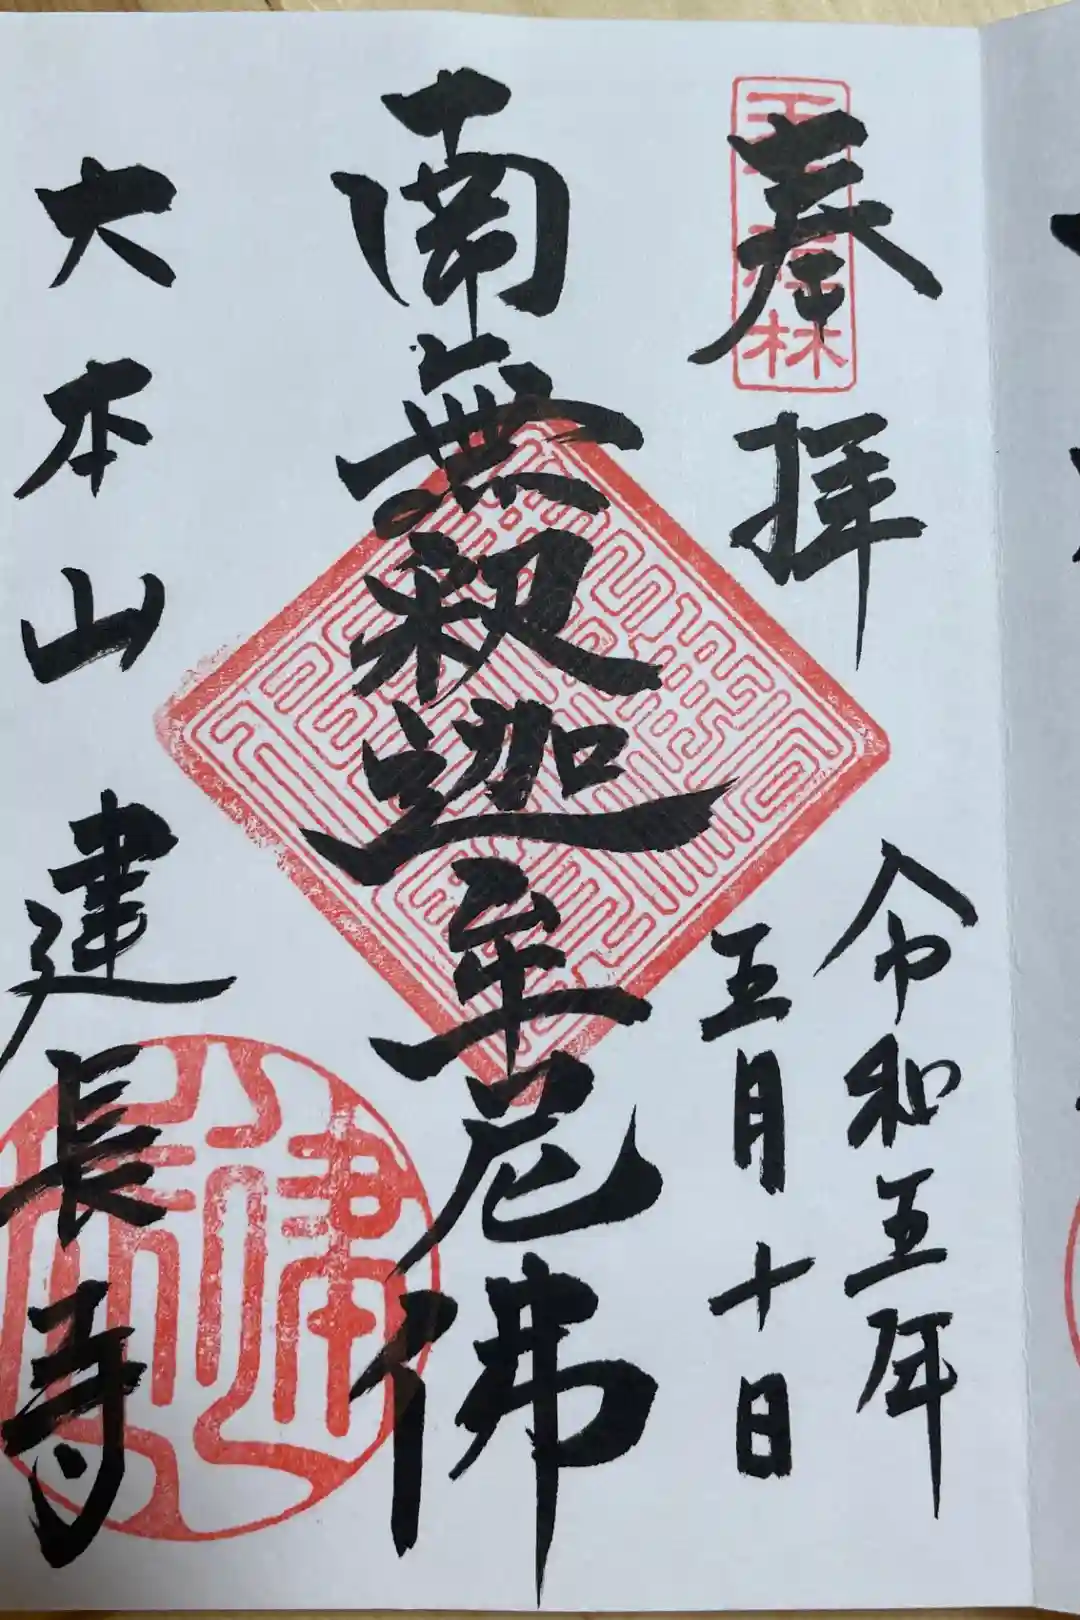 奉拝
令和五年
五月十日
南無釈迦牟尼佛
大本山建長寺